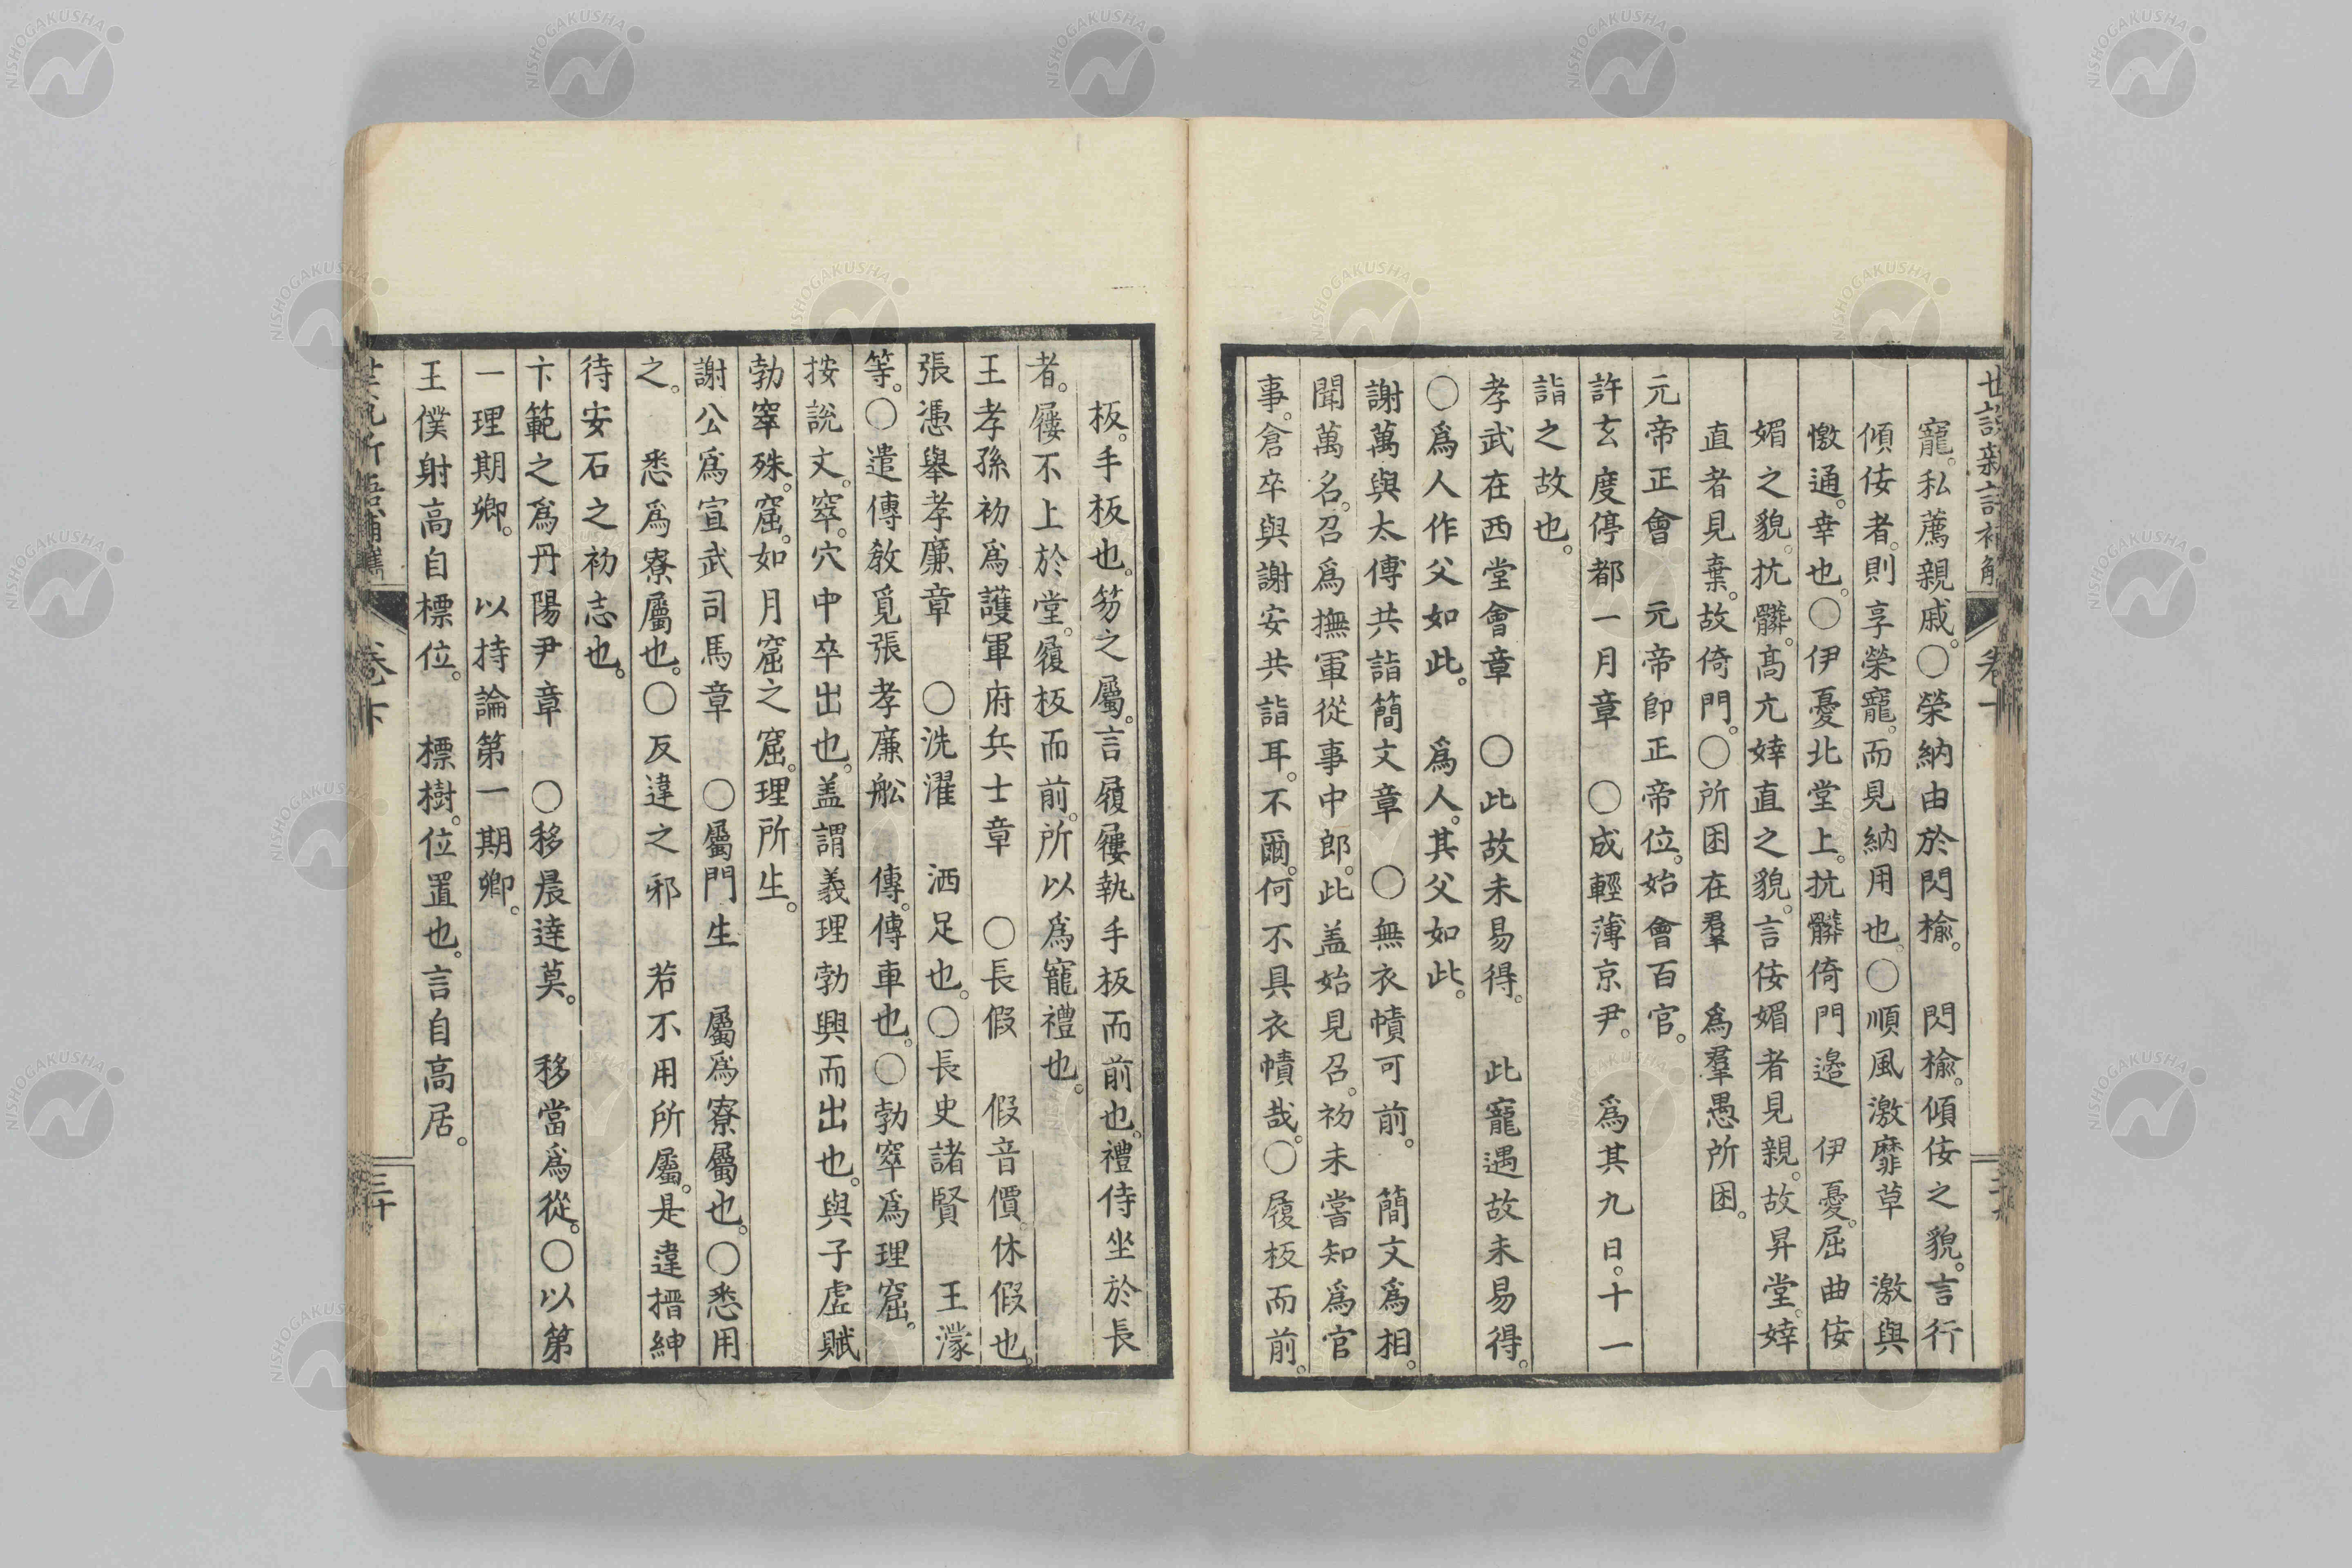 寵。私薦親戚。○榮納由於閃揄。　閃揄。傾佞之貌。言行
傾佞者。則享榮寵。而見納用也。○順風激靡草　激與
憿通。幸也。○伊憂北堂上。抗髒倚門邉　伊憂。屈曲佞
媚之貌。抗髒。高亢婞直之貌。言佞媚者見親。故昇堂。婞
直者見棄。故倚門。○所困在羣　為羣愚所困。
元帝正會　元帝卽正帝位。始會百官。
許玄度停都一月章　○成輕薄京尹。　爲其九日。十一
詣之故也。
孝武在西堂會章　○此故未易得。　此寵遇故未易得。
○爲人作父如此。　爲人。其父如此。
謝萬與太傅共詣簡文章　○無衣幘可前。　簡文爲相。
聞萬名。召爲撫軍從事中郎。此盖始見召。初未嘗知爲官
事。倉卒與謝安共詣耳。不爾。何不具衣幘哉。○履板而前。
板。手板也。笏之屬。言履屨執手板而前也。禮侍坐於長
者。屨不上於堂。履板而前。所以爲寵禮也。
王孝孫初爲護軍府兵士章　○長假　假音價。休假也。
張憑舉孝廉章　○洗濯　洒足也。○長史諸賢　王濛
等。○遣傳教覓張孝廉舩　傳。傳車也。○勃窣爲理窟。
按說文。窣。穴中卒出也。盖謂義理勃興而出也。與子虛賦
勃窣殊。窟。如月窟之窟。理所生。
謝公爲宣武司馬章　○屬門生　屬爲寮屬也。○悉用
之。　悉爲寮屬也。○反違之邪　若不用所屬。是違搢紳
待安石之初志也。
卞範之爲丹陽尹章　○移晨達莫。　移當爲從。○以第
一理期卿。　以持論第一期卿。
王僕射高自標位。　標樹。位置也。言自高居。
三十